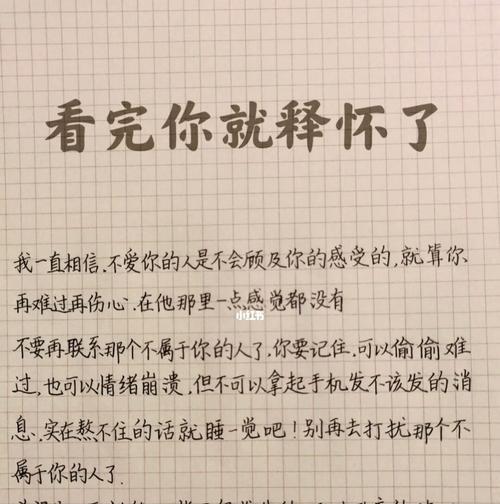 看完你就释怀了
我一直相信,不爱你的人是不会顾及你的感受的,就算你
再难过再伤心.在他那里一点感觉都没有
小红书
不要再联系那个不属于你的人了,你要记住,可以偷偷难
过,也可以情绪崩溃,但不可以拿起手机发不该发的消
息,实在熬不住的话就睡一觉吧!别再去打扰那个不
属于你的人了.